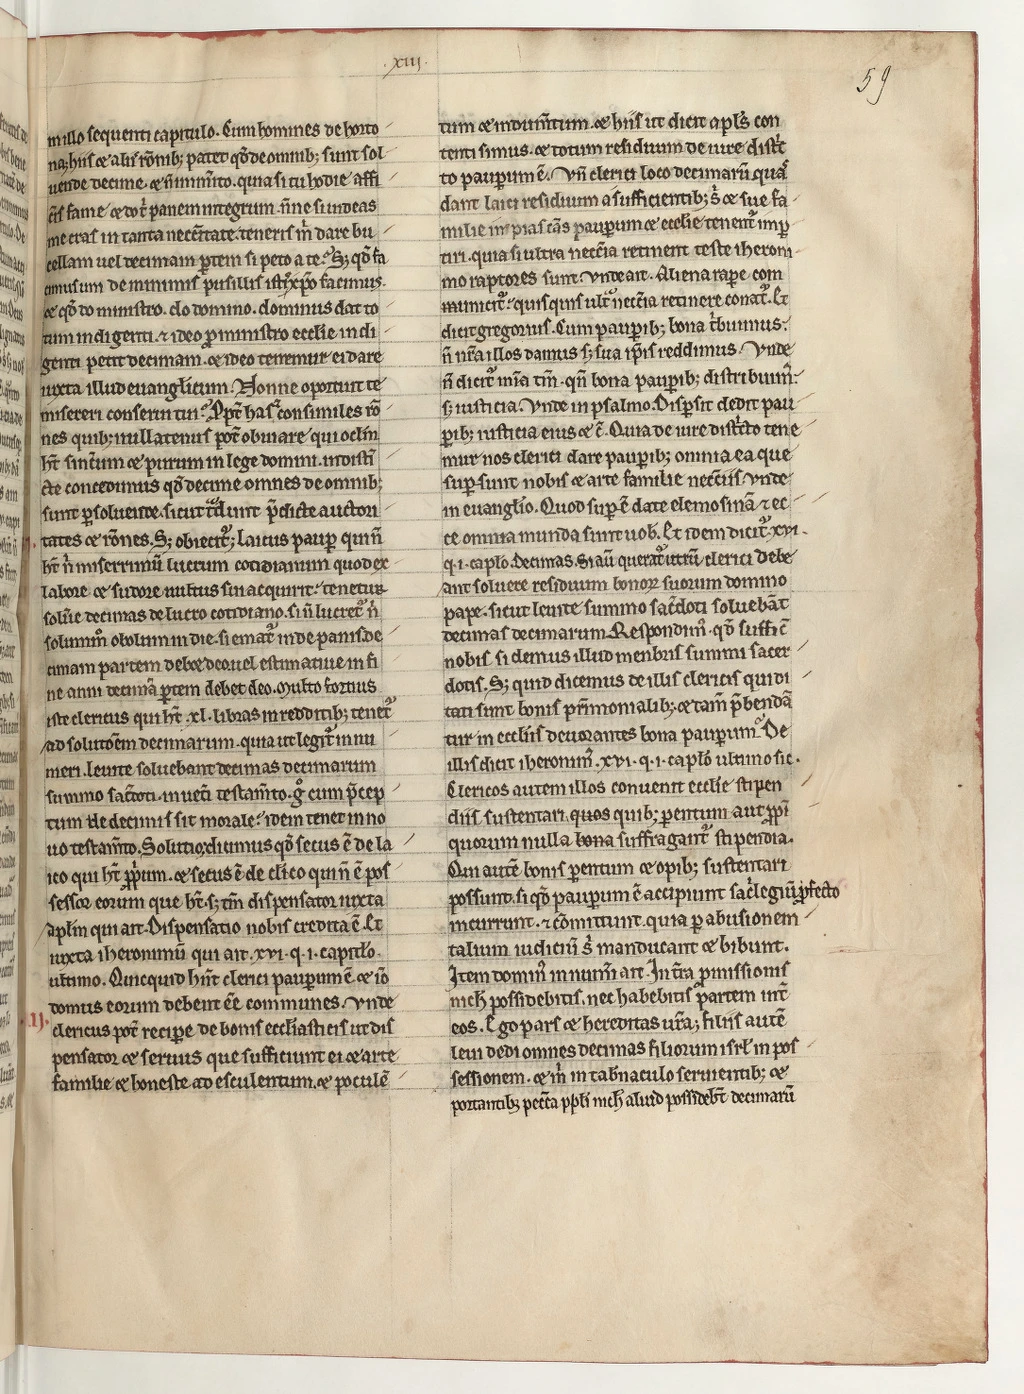 .xiij.
59
in illo sequenti capitulo. Cum homines de horto
na; hiis & aliis rōnib; patet qd̄ de omnib; sunt sol
uende decime. & n̄ inmīto. quia si tu hodie affi
cīs fame & dot̄ panem integrum. nne si uideas
me cras in tanta necc̄itate. teneris m̄ dare bu
cellam uel decimam p̱tem si peto a te. S; qd̄ fa
cimus um de minimis pusillis isti xp̄o facimus.
& qd̄ do ministro. do domino. dominus dat to
tum indigenti. & ideo p̱ ministro ecclīe indi
genti petit decimam. & ideo tenemur ei dare
iuxta illud euanglicum. Nonne oportuit te
misereri conserui tui. Ppt̄ has & consimiles rō
nes quib; nullatenus pot̄ obuiare qui oc̄lm
ht̄ sinc̄um & purum in lege domini. indisti
cte concedimus qd̄ decime omnes de omnib;
sunt p̱soluende. sicut t̄dunt p̄dicte auctori
tates & rōnes. S; obicit̄; laicus paup̱ qui n̄
ht̄ n̄ miserrimū lucrum cotidianum quod ex
labore & sudore uultus sui acquirit. tenetur
solūe decimas de lucro cotidiano. si n̄ lucret̄ n̄
solumm̄ obolum in die. si emat̄ inde panis de
cimam partem debet deo uel estimatiue in fi
ne anni decimā p̱tem debet deo. Multo fortius
iste clericus qui ht̄ .xl. libras in redditib; tenet̄
ad solutōem decimarum. quia ut legit̄ in nu
meri. leuite soluebant decimas decimarum
summo sac̄doti. in uet̄i testam̄to. ḡ cum p̄cep
tum de decimis sit morale. idem tenet in no
uo testam̄to. Solutio. dicimus qd̄ secus ē de la
ico qui ht̄ pp̱ium. & secus ē de cl̄ico qui n̄ ē pos
sessor eorum que ht̄. s; tm̄ dispensator iuxta
apl̄m qui ait. Dispensatio nobis credita ē. Et
iuxta iheronimū qui ait. xvi. q. i. capitl̄o.
ultimo. Quicquid hn̄t clerici paup̱um ē. & iō
domus eorum debent eē communes. Vnde
.ij. clericus pot̄ recip̱e de bonis ecclīasticis ut dis
pensator & seruus que sufficiunt ei & arte
familie & honeste ad esculentum. & poculē
tum & indum̄tum. & hiis ut dicit apl̄s con
tenti simus. & totum residuum de iure distc̄
to paup̱um ē. Vn̄ clerici loco decimarū qua̅
dant laici residuum a sufficientib; s̄ & sue fa
milie in pias cās paup̱um & ecclīe tenent̄ imp̱
tiri. quia si ultra necc̄ia retinent teste iheroni
mo raptores sunt. Vnde ait. Aliena rape con
uincit̄. quisquis ult̄ necc̄ia retinere conat̄. Et
dicit gregorius. Cum paup̱ib; bona t̄buimus.
n̄ nr̄a illos damus s; sua ip̄is reddimus. Vnde
n̄ dicit̄ mīa tm̄. qn̄ bona paup̱ib; distribuim̄.
s; iusticia. Vnde in psalmo. Disp̱sit dedit pau
p̱ib; iusticia eius & c̄. Quia de iure distc̄to tene
mur nos clerici dare paup̱ib; omnia ea que
sup̱sunt nobis & arte familie necc̄iis vnde
in euanglio. Quod sup̱ē date elemosinā & ec
ce omnia munda sunt uob. Et idem dicit̄. xvi.
q. i. capl̄o. Decimas. Si aū querat̄ utrū clerici debe
ant soluere residuum bonoꝝ suorum domino
pape. sicut leuite summo sac̄doti soluebāt
decimas decimarum. Respondim̄. qd̄ suffic̄
nobis si demus illud menbris summi sacer
dotis. S; quid dicemus de illis clericis qui di
tati sunt bonis pr̄imonialib; & tam̄ p̱bendā
tur in ecclīis deuorantes bona paup̱um. De
illis dicit iheronim̄. xvi. q. i. capl̄o ultimo sic.
Clericos autem illos conuenit ecclīe stipen
diis sustentari. quos quib; p̱entum aut pp̱i
quorum nulla bona suffragant̄ stipendia.
Qui autē bonis p̱entum & opib; sustentari
possunt. si qd̄ paup̱um ē accipiunt sac̄legiū p̱fecto
incurrunt. & cōmittunt. quia p̱ abusionem
talium iudiciū s̄ manducant & bibunt.
Item domin̄ in num̄i ait. In t̄ra p̱missionis
nich̄ possidebitis. nec habebitis p̱tem int̄
eos. Ego pars & hereditas ur̄a; filiis autē
leui dedi omnes decimas filiorum isrl̄ in pos
sessionem. & m̄ in tab̄naculo seruientib; &
portantib; pecc̄a pp̱li nich̄ aliud possidebt̄ decimarū